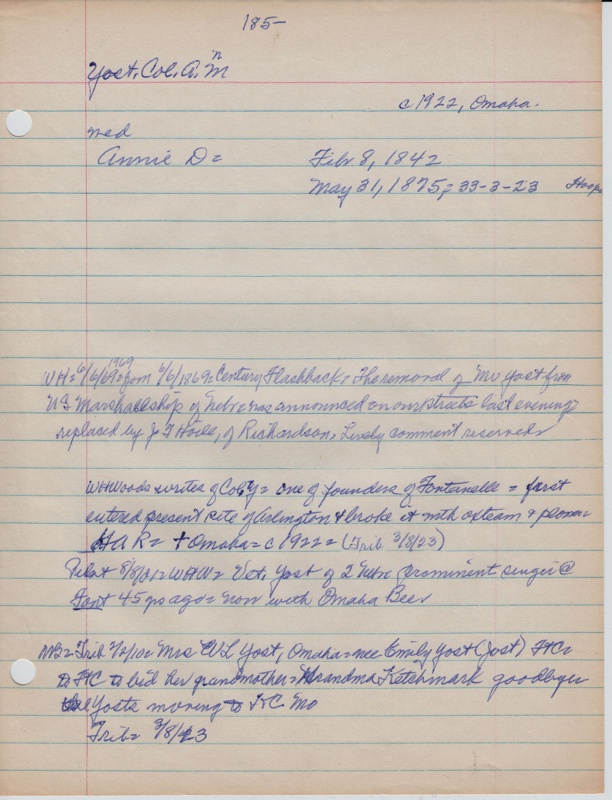 185-
Yost, Col. A. M
c 1922, Omaha.
med
Annie D =
Febr 8, 1842
May 31, 1875; 33-3-23 Hoops
WH = 6/6/1969 = from 6/6/1869 = Century Flashback, The removal of Mr Yost from
U.S. Marshallship of Nebr was announced on our streets last evening =
replaced by J T Hoile, of Richardson, Lively comment reserved
WHWoods writes of Col Y = one of founders of Fontanelle = first
entered present site of Arlington & broke it with oxteam &
GAR = † Omaha = c 1922 = (Trib 3/8/23)
Pilot 8/8/01 = WHW = Vet. Yost of 2 Nebr prominent singer @
Font 45 ys ago = now with Omaha Bee
NB = Trib = Mrs W L Yost, Omaha = nee Emily Yost (Jost) FtC =
to FtC to bid her grandmother = Grandma Ketchmark goodbye
the Yosts moving to KC Mo
Trib = 3/8/23